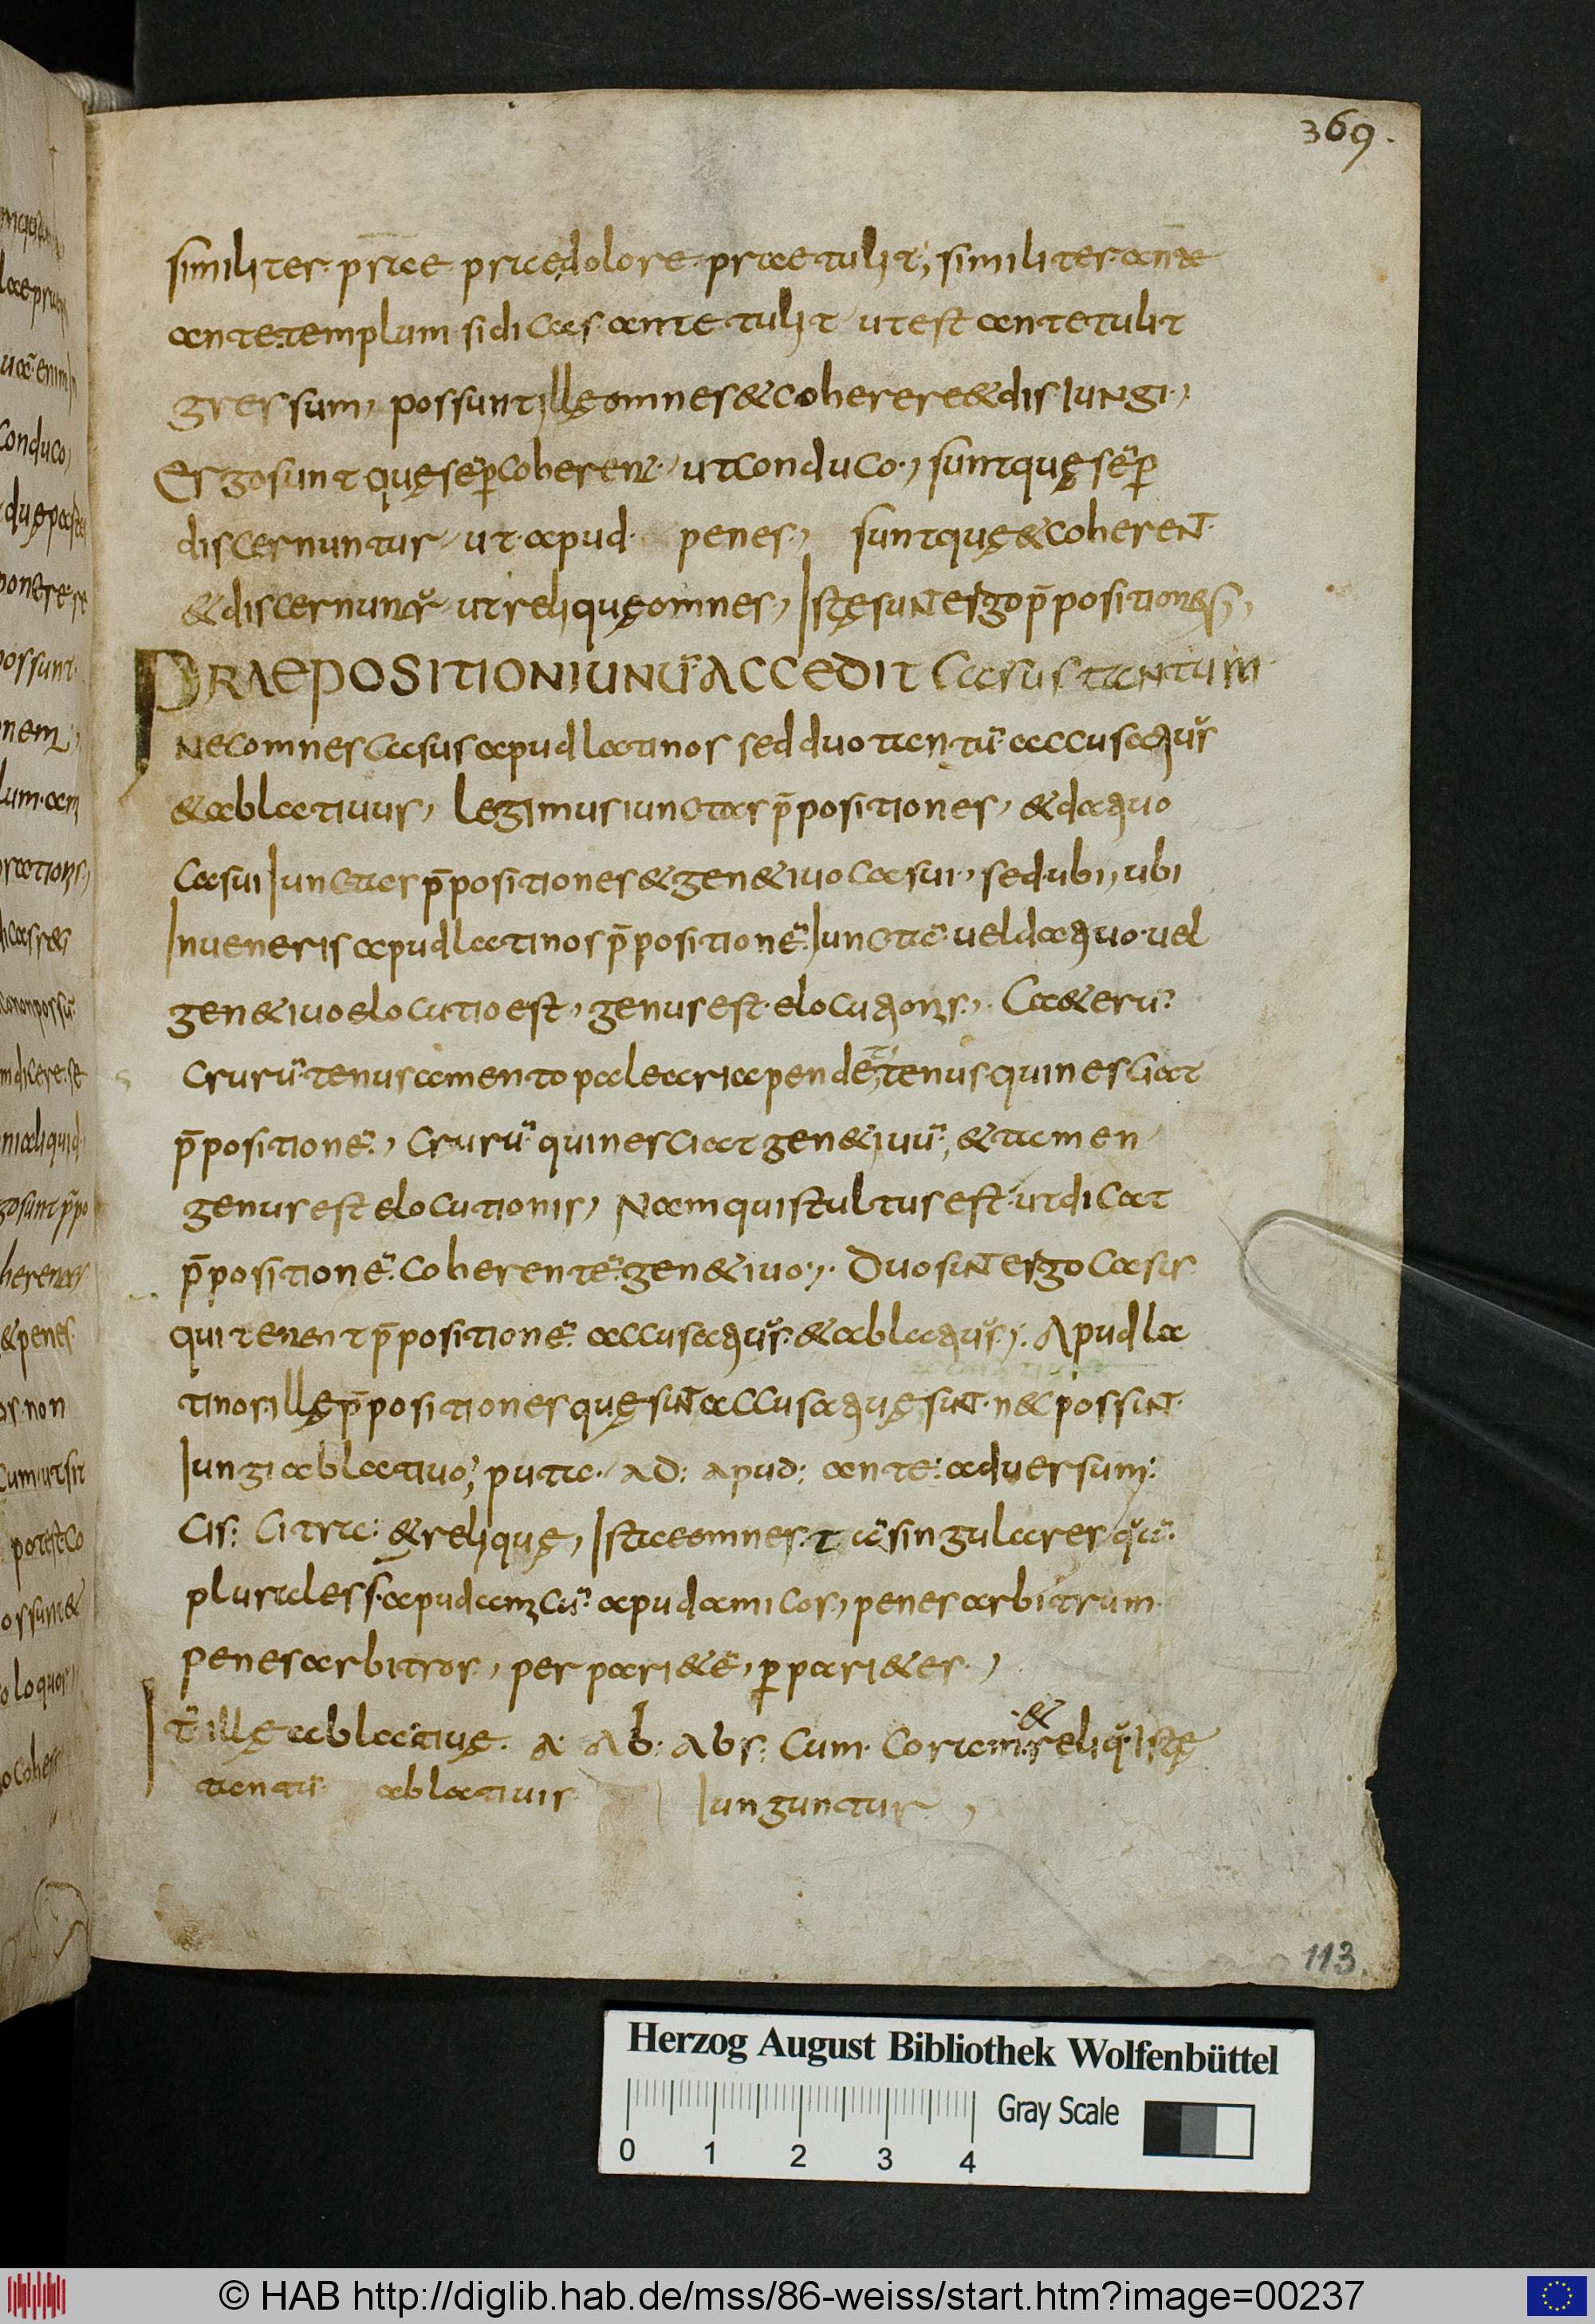 369.
similiter p̄rae prae dolore praetulit; similiter ante
ante templum si dicas ante tulit ut est antetulit
gressum, possunt illę omnes & coherere & disiungi.,
Ergo sunt quę sēp̄ coherent. ut conduco., sunt quę sēp̄
discernuntur ut apud. penes., sunt quę & coherent.
& discernunt̄ ut reliquę omnes, Istę sunt ergo p̄positiones,
PRAEPOSITIONI UNŪ ACCEDIT casus tantum.
nec omnes casus apud latinos sed duo tantū accusatiuus
& ablatiuus, legimus iunctas p̄positiones, & datiuo
casui iunctas p̄positiones & gen&iuo casui., sed ubi, ubi
Inueneris apud latinos p̄positionē iunctā uel datiuo uel
gen&iuo elocutio est, genus est elocutionis., Ca&erū
crurū tenus a mento palearia pendent, tenus qui nesciat
p̄positionē., crurū qui nesciat gen&iuū, & tamen
genus est elocutionis, Nam qui stultus est ut dicat
p̄positionē coherentē gen&iuo., Duo sunt ergo casus
qui tenent p̄positionē accusatiuus & ablatiuus., Apud la
tinos illę p̄positiones quę sunt accusatiuę sunt. nec possunt.
Iungi ablatiuo, puta. ad: apud: ante: aduersum:
cis: citra: & reliquę, Istae omnes tā singulares quā
plurales s̄. apud amicū apud amicos, penes arbitrum.
penes arbitros., per pari&ē, p̄ pari&es.,
It̄ illę ablatiuę. a. ab: abs: cum. coram. & reliq̄. Istę
tantū ablatiuis Iunguntur,
113
Herzog August Bibliothek Wolfenbüttel
Gray Scale
0 1 2 3 4
© HAB http://diglib.hab.de/mss/86-weiss/start.htm?image=00237